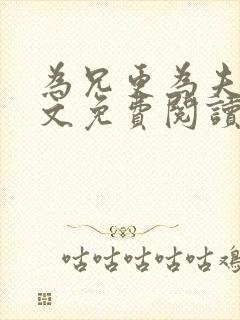 為兄更為夫
文免費閱讀
咕咕咕咕咕雞